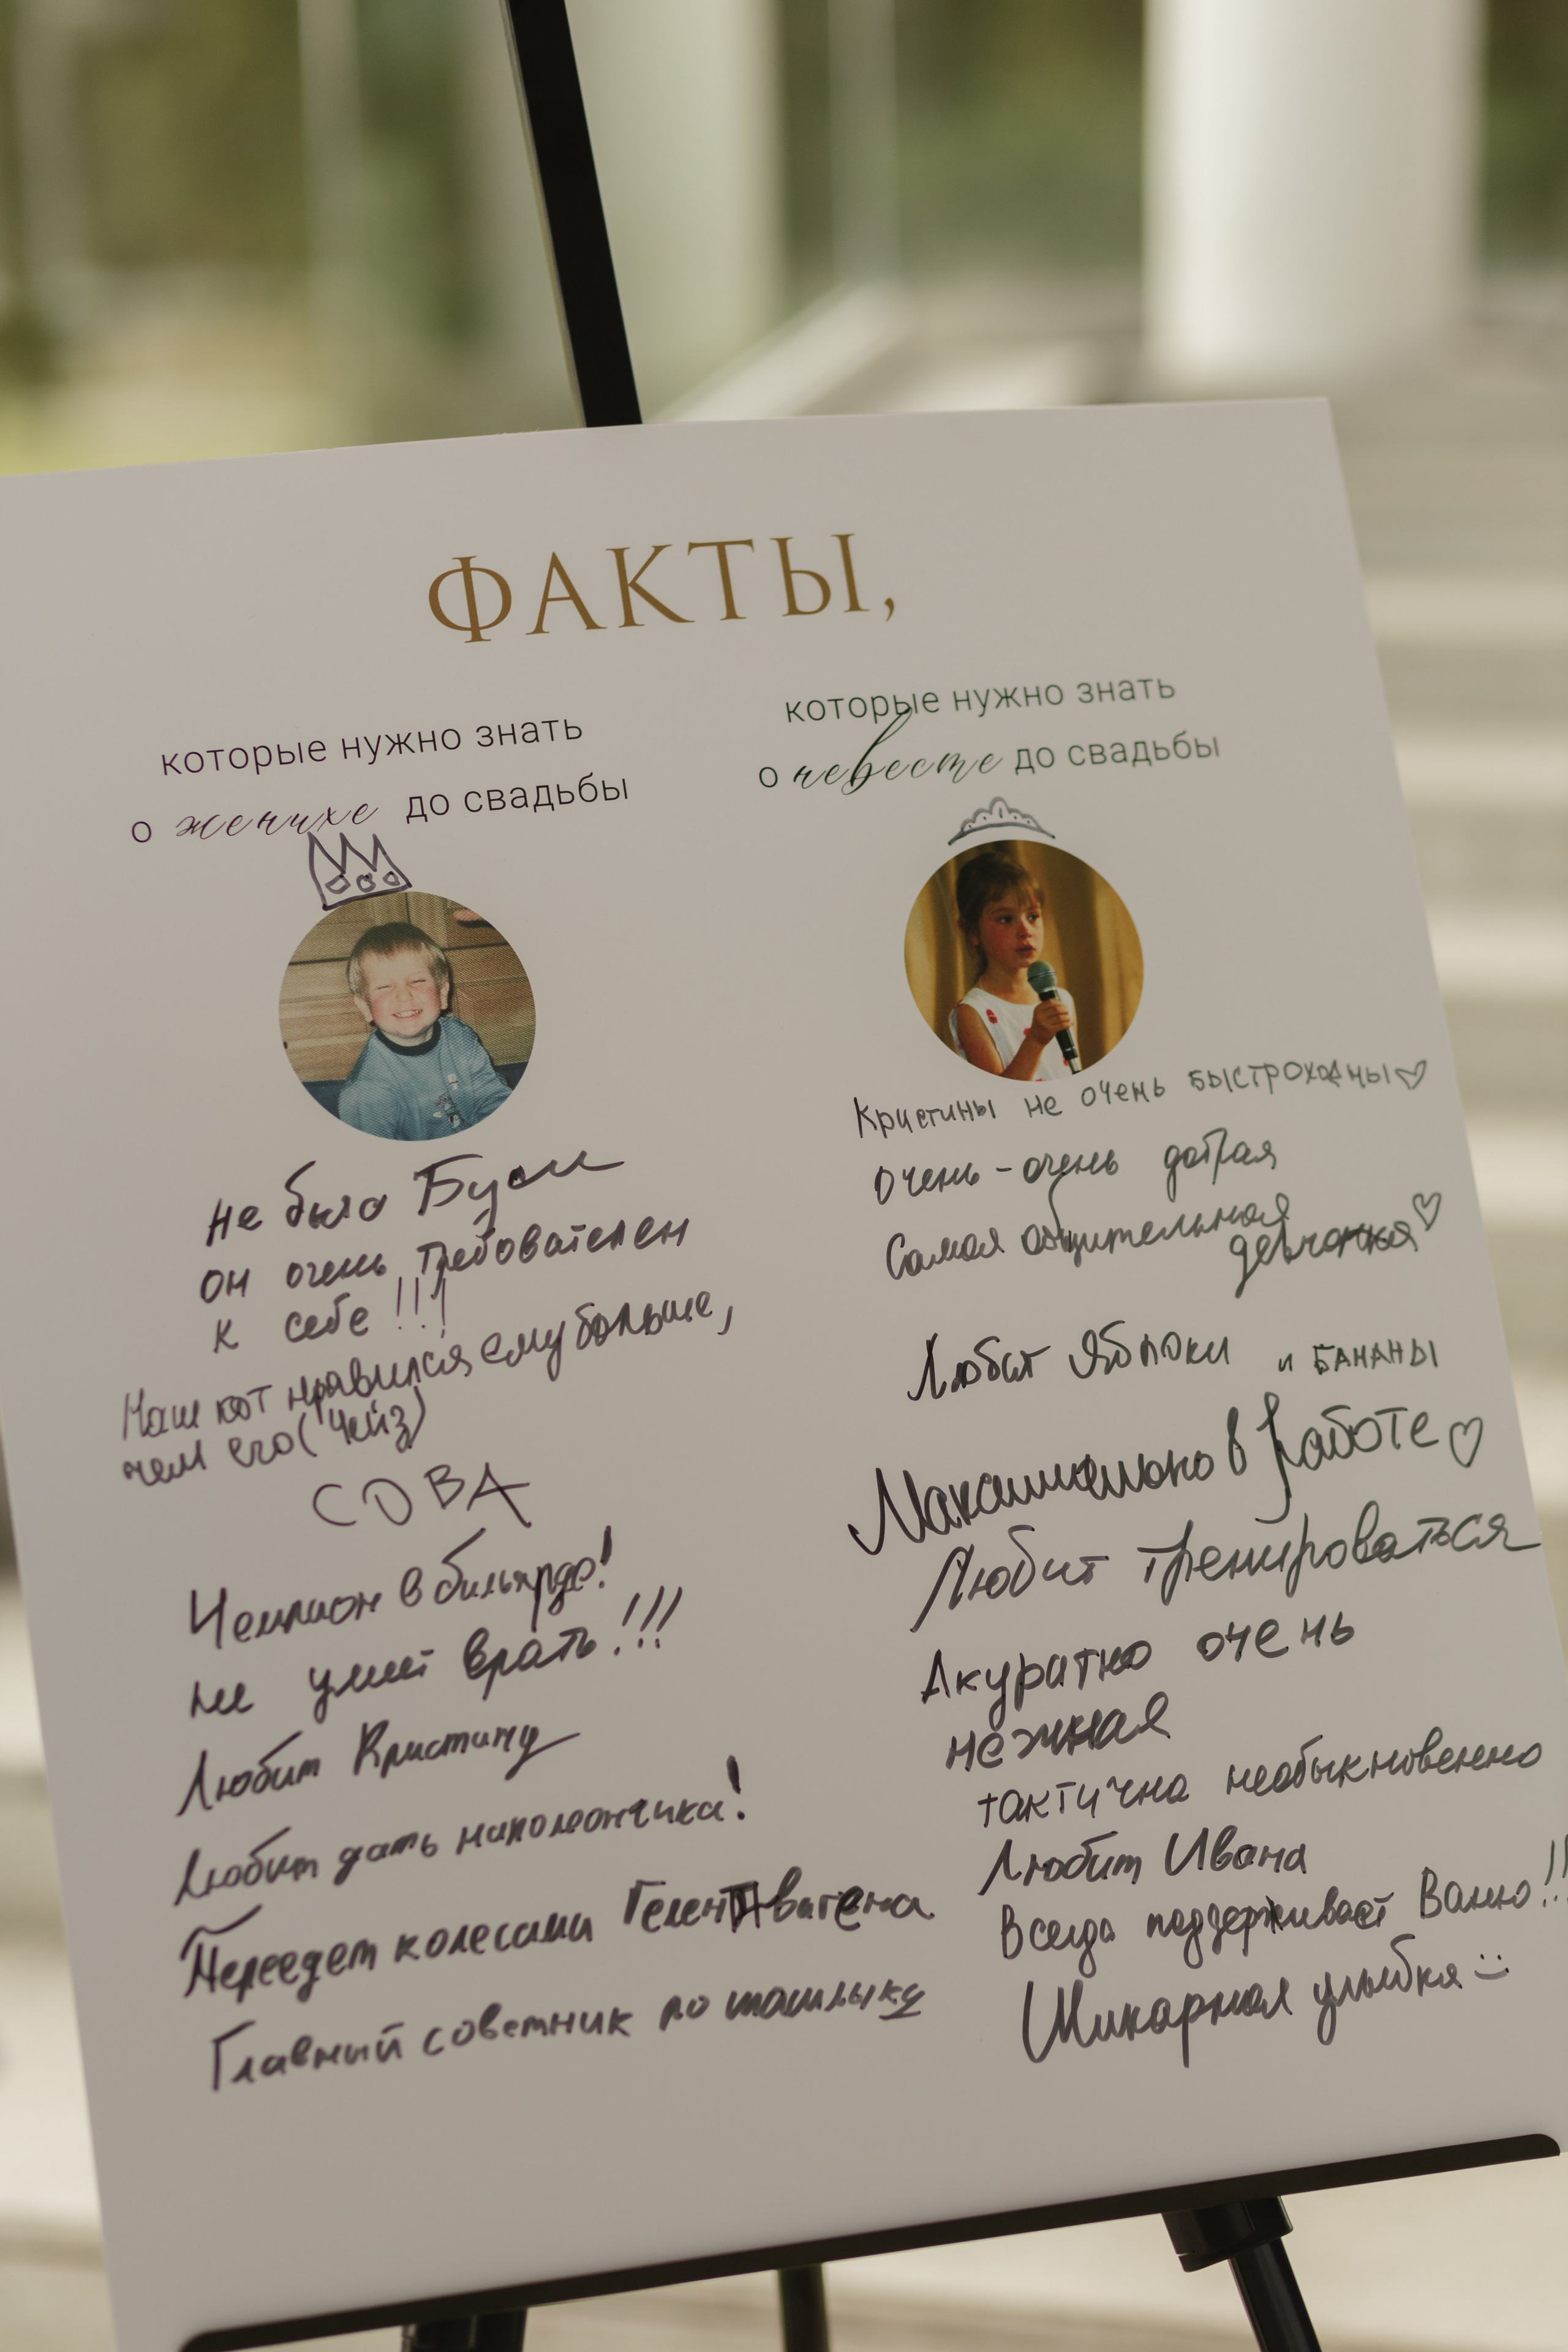 ФАКТЫ,
которые нужно знать
о женихе до свадьбы
не было
он очень требователен
к себе!!!
Наш кот нравился ему больше,
чем его (Чейз)
СОВА
Чемпион в бильярде!
не умеет врать!!!
Любит Кристину
Любит дать наполеончика!
Переедет колесами Гелентвагена
Главный советник по шашлыку
которые нужно знать
о невесте до свадьбы
Кристины не очень быстроходны♡
Очень-очень добрая
Самая общительная
девчонка♡
Любит Яблоки и БАНАНЫ
Максимально в работе♡
Любит тренироваться
Акуратно очень
нежная
тактична необыкновенно
Любит Ивана
Всегда поддерживает Ваню!!
Шикарная улыбка :)